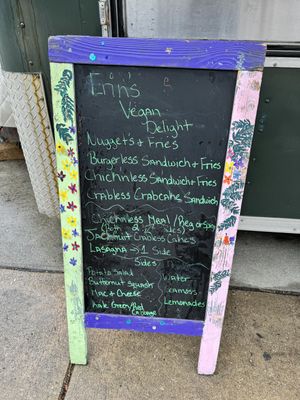 Erin's
Vegan
Delight
Nuggets + Fries
Burgerless Sandwich + Fries
Chichnless Sandwich + Fries
Crabless Crabcake Sandwich
Chichnless Meal / Reg or Spicy
(Both 2 Sides)
Jackfruit Crabless Cakes
Lasagna → 1 Side
Sides
Potato Salad
Butternut Squash
Mac & Cheese
Kale Green/Red
Cabbage
Water
Seamoss
Lemonades